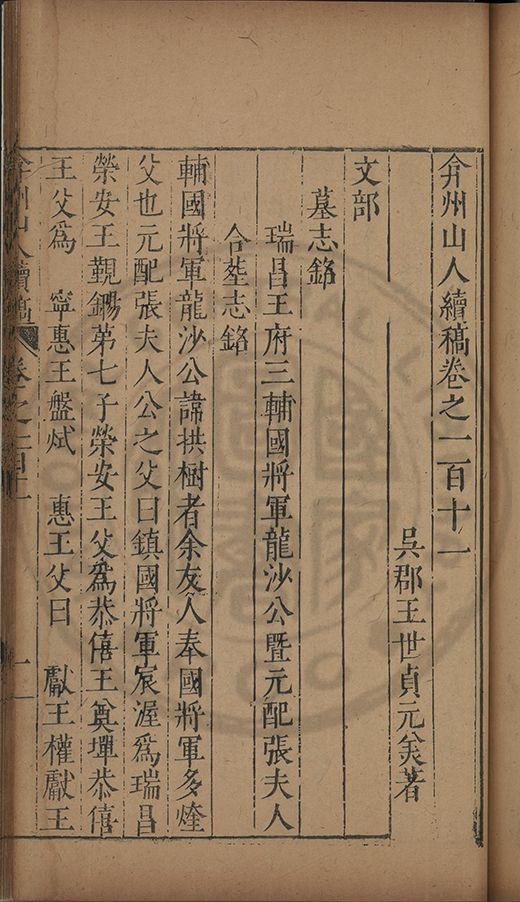 弇州山人續稿卷之一百十一
吳郡王世貞元美著
文部
墓志銘
瑞昌王府三輔國將軍龍沙公暨元配張夫人
合葬志銘
輔國將軍龍沙公諱拱樹者余友人奉國將軍多煃
父也元配張夫人公之父曰鎮國將軍宸渥為瑞昌
榮安王覲鐊第七子榮安王父為恭僖王奠墠恭僖
王父為 寧惠王盤烒 惠王父曰 獻王權獻王
弇州山人續稿 卷之一百十一 一